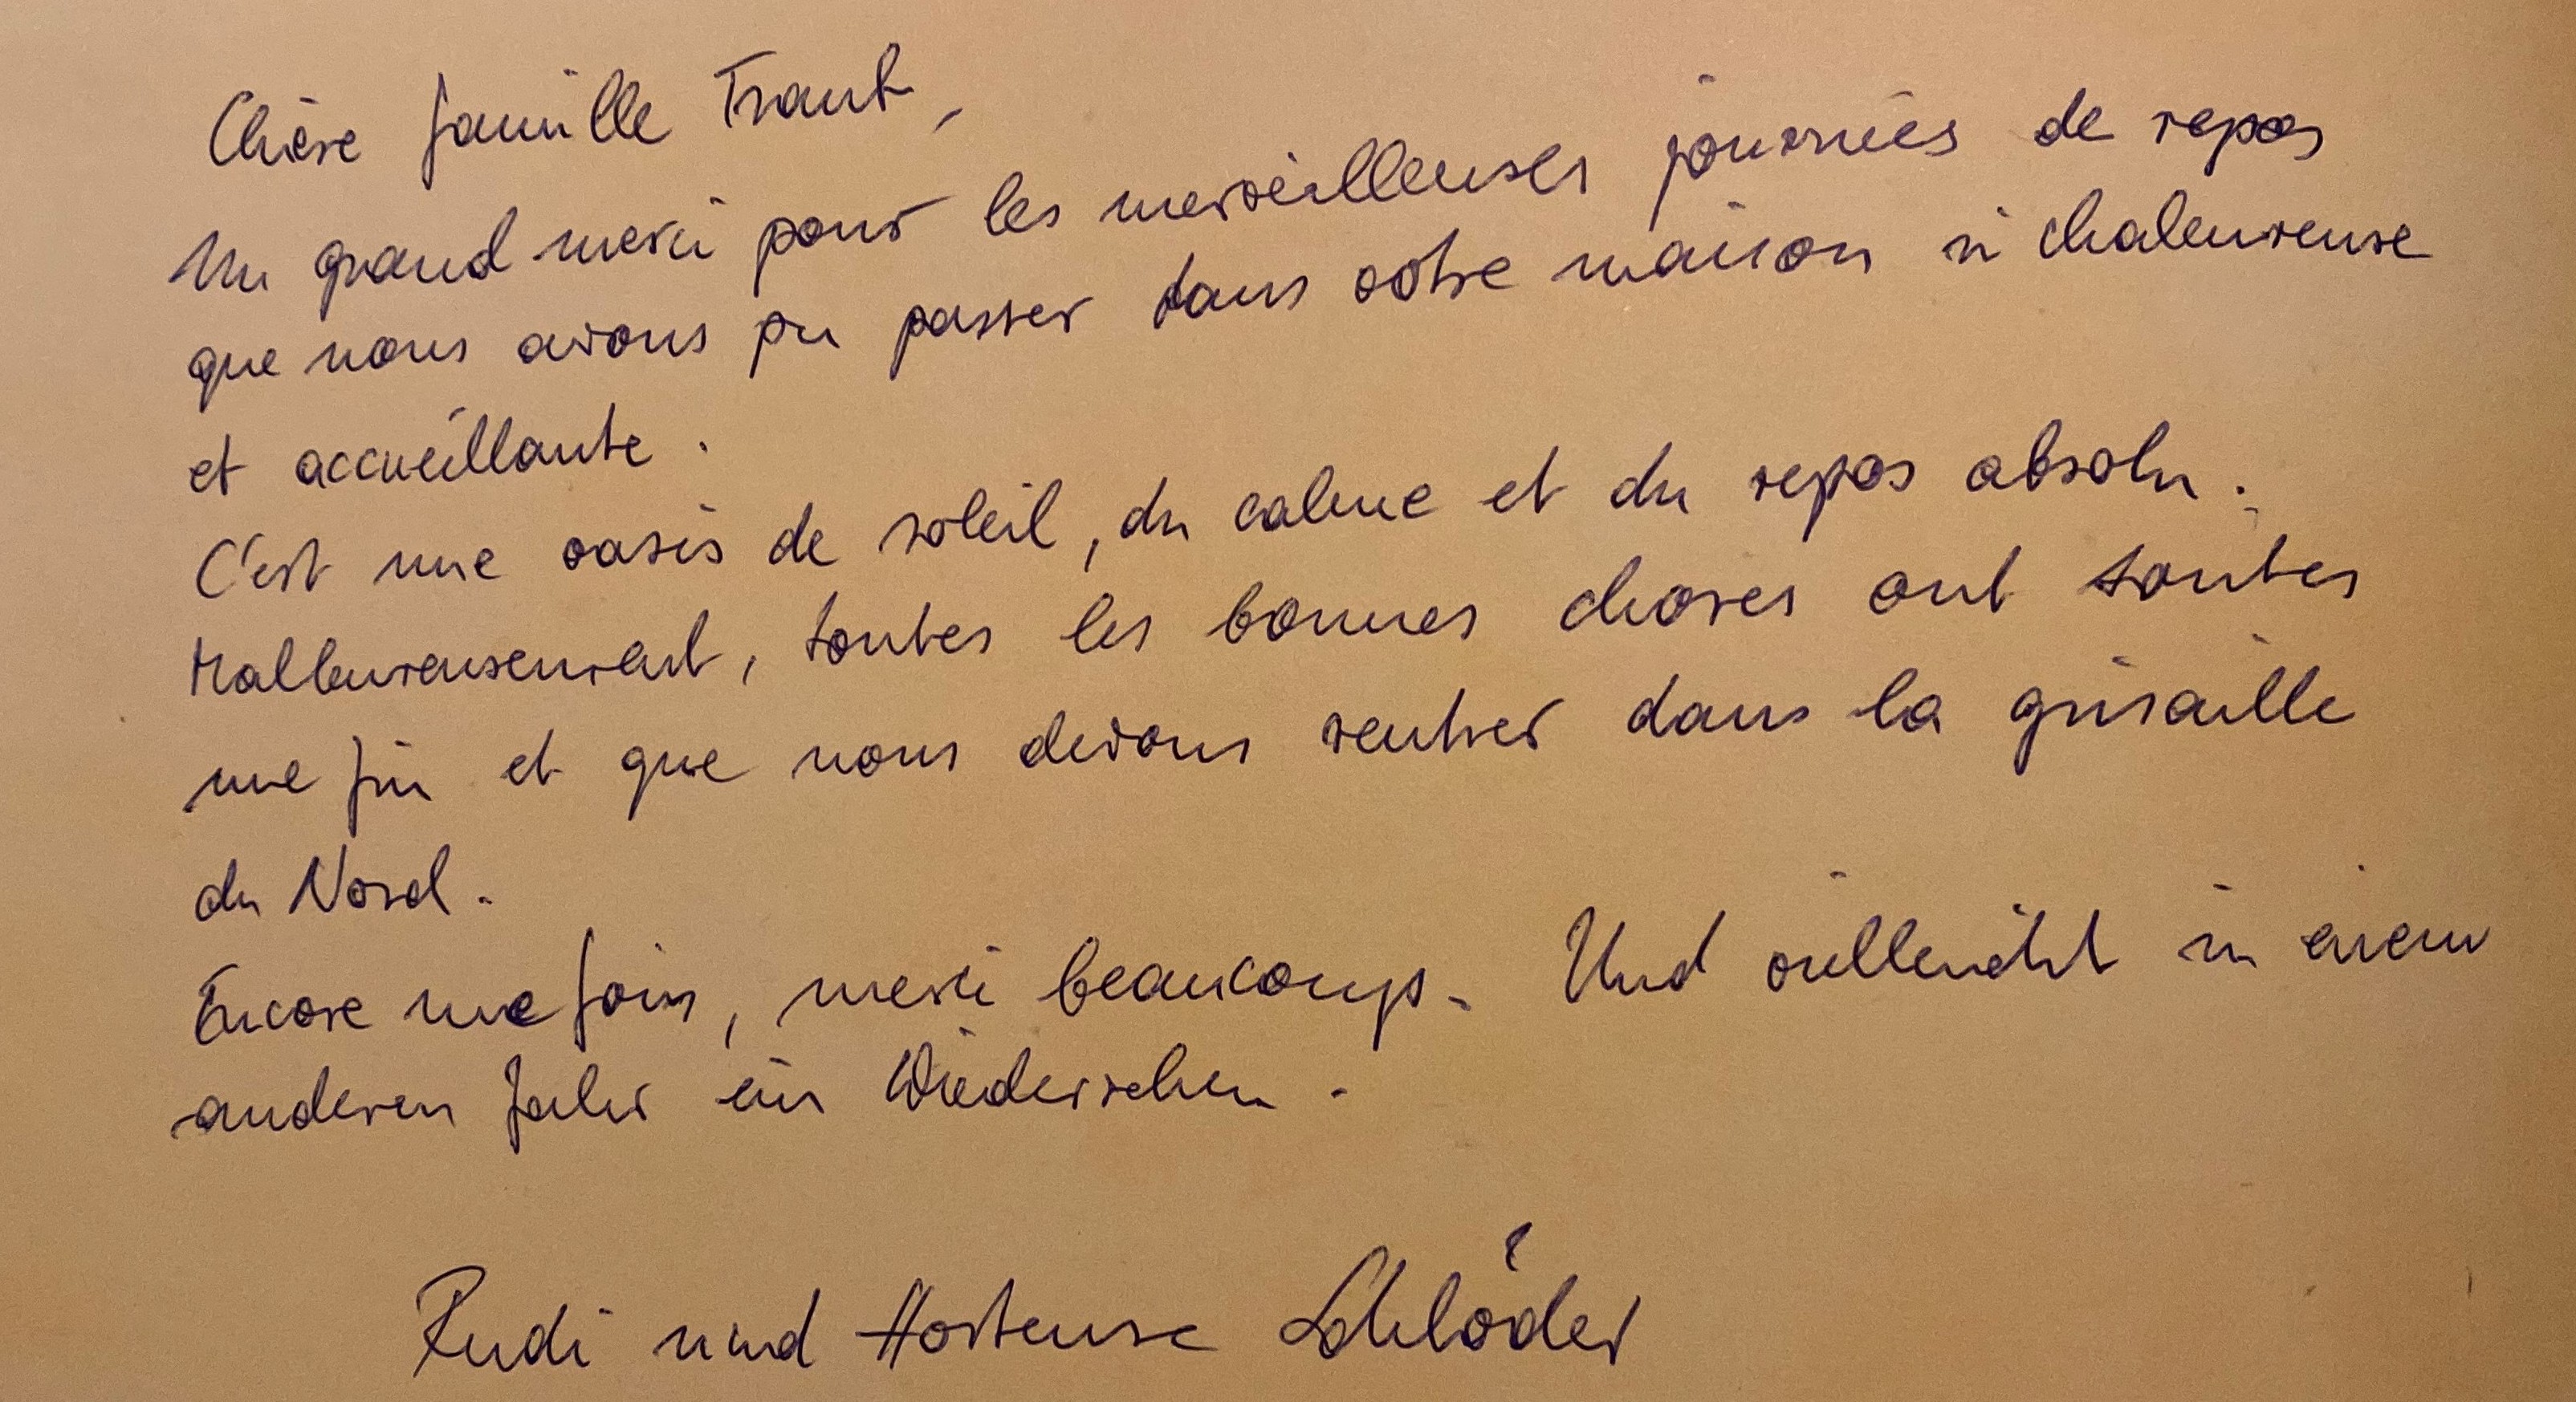 Chère famille Traut,
Un grand merci pour les merveilleuses journées de repos
que nous avons pu passer dans votre maison si chaleureuse
et accueillante.
C'est une oasis de soleil, du calme et du repos absolu.
Malheureusement, toutes les bonnes choses ont toutes
une fin et que nous devons rentrer dans la grisaille
du Nord.
Encore une fois, merci beaucoup. Und vielleicht in einem
anderen Jahr ein Wiedersehen.
Rudi und Hortense Schlöder